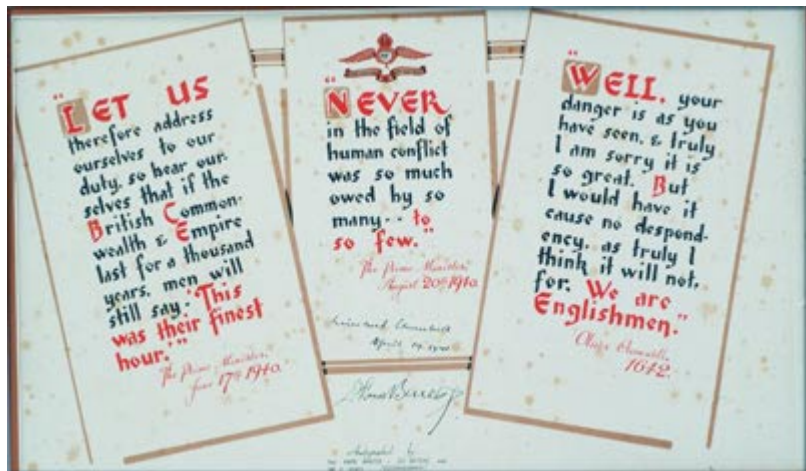 "LET US
therefore address
ourselves to our
duty, so bear our-
selves that if the
British Common-
wealth & Empire
last for a thousand
years, men will
still say: 'This
was their finest
hour.'"
The Prime Minister,
June 17th 1940.
"NEVER
in the field of
human conflict
was so much
owed by so
many - - to
so few."
The Prime Minister,
August 20th 1940.
April 1941
Autographed by
"WELL, your
danger is as you
have seen, & truly
I am sorry it is
so great. But
I would have it
cause no despond-
ency, as truly I
think it will not,
for, We are
Englishmen."
Oliver Cromwell,
1642.